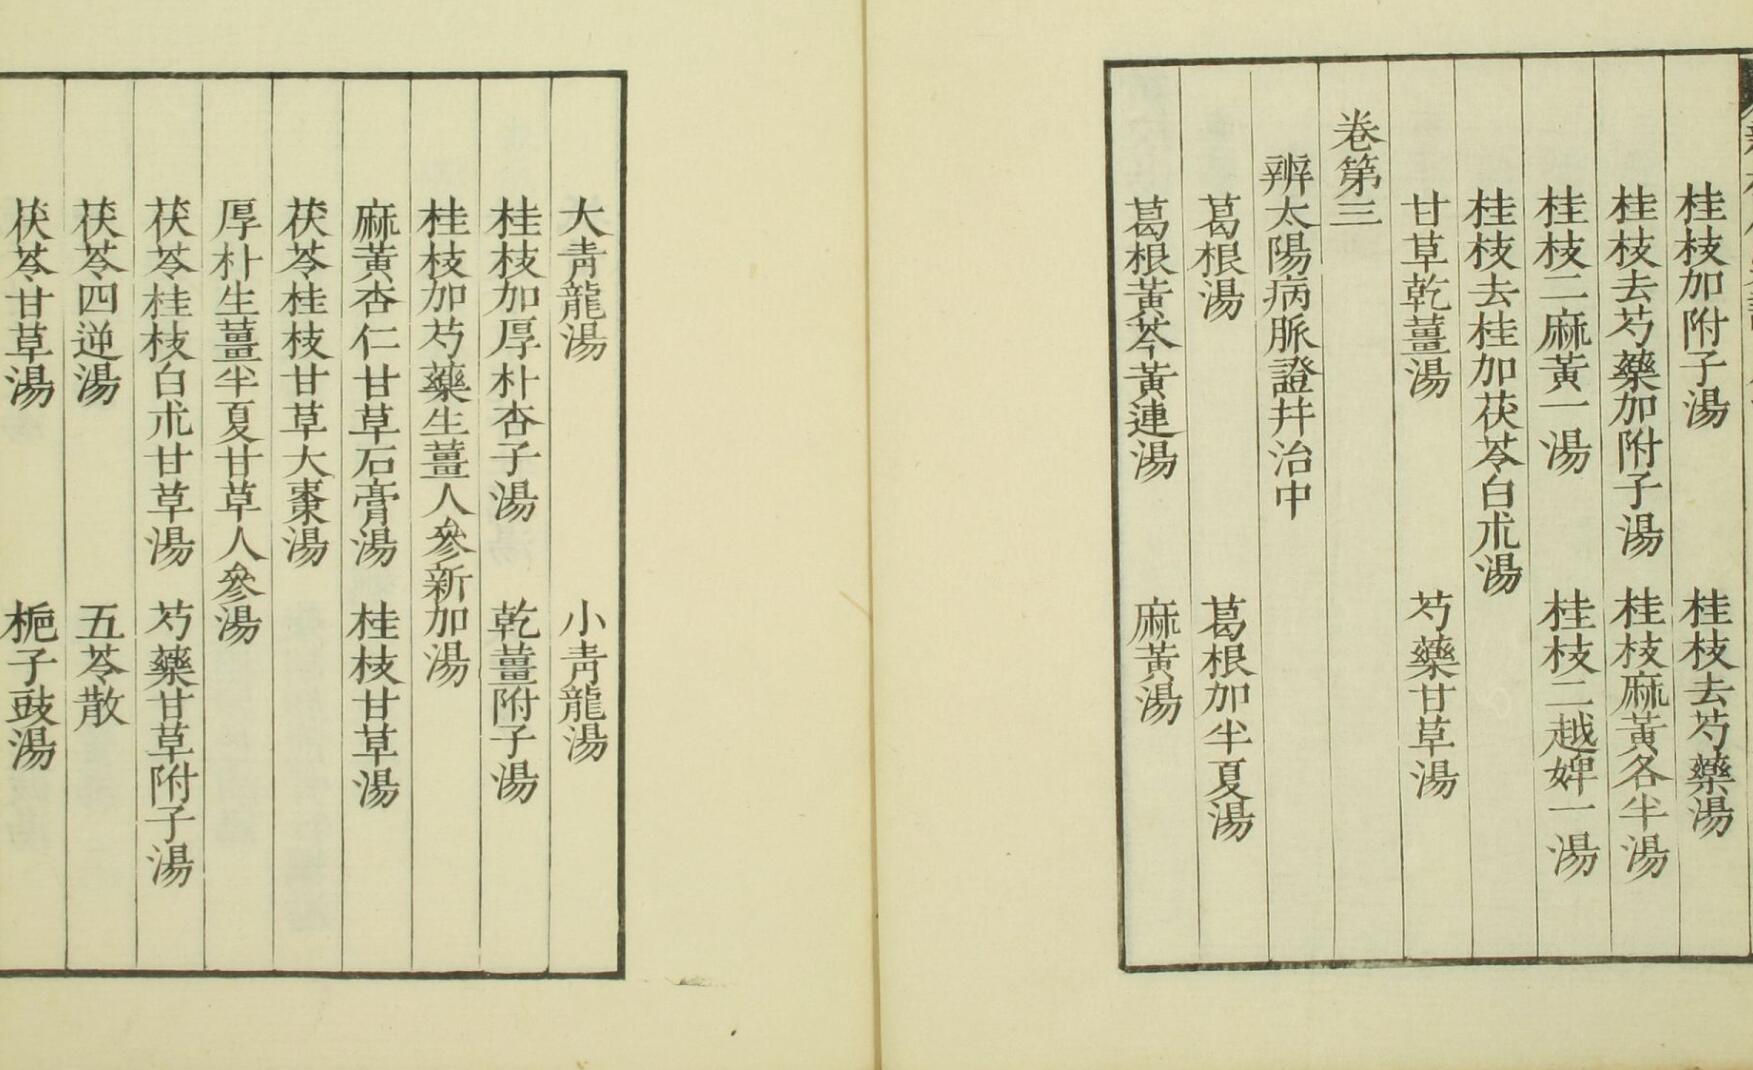 桂枝加附子湯 桂枝去芍藥湯
桂枝去芍藥加附子湯 桂枝麻黃各半湯
桂枝二麻黃一湯 桂枝二越婢一湯
桂枝去桂加茯苓白朮湯
甘草乾薑湯 芍藥甘草湯
卷第三
辨太陽病脈證幷治中
葛根湯 葛根加半夏湯
葛根黃芩黃連湯 麻黃湯
大靑龍湯 小靑龍湯
桂枝加厚朴杏子湯 乾薑附子湯
桂枝加芍藥生薑人參新加湯
麻黃杏仁甘草石膏湯 桂枝甘草湯
茯苓桂枝甘草大棗湯
厚朴生薑半夏甘草人參湯
茯苓桂枝白朮甘草湯 芍藥甘草附子湯
茯苓四逆湯 五苓散
茯苓甘草湯 梔子豉湯